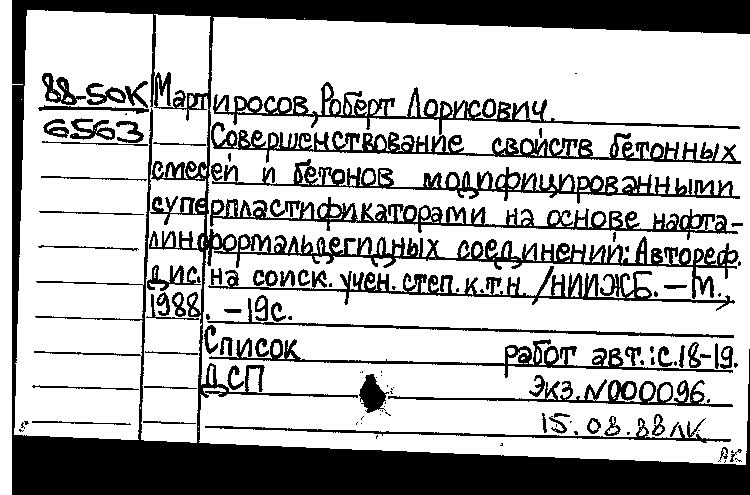 88-50К Мартиросов, Роберт Лорисович.
6563 Совершенствование свойств бетонных
смесей и бетонов модифицированными
суперпластификаторами на основе нафта-
линформальдегидных соединений: Автореф.
дис. на соиск. учен. степ. к.т.н. /НИИЖБ. – М.,
1988. – 19с.
Список работ авт.: с.18-19.
ДСП Экз.N000096.
15.08.88 лк
АК